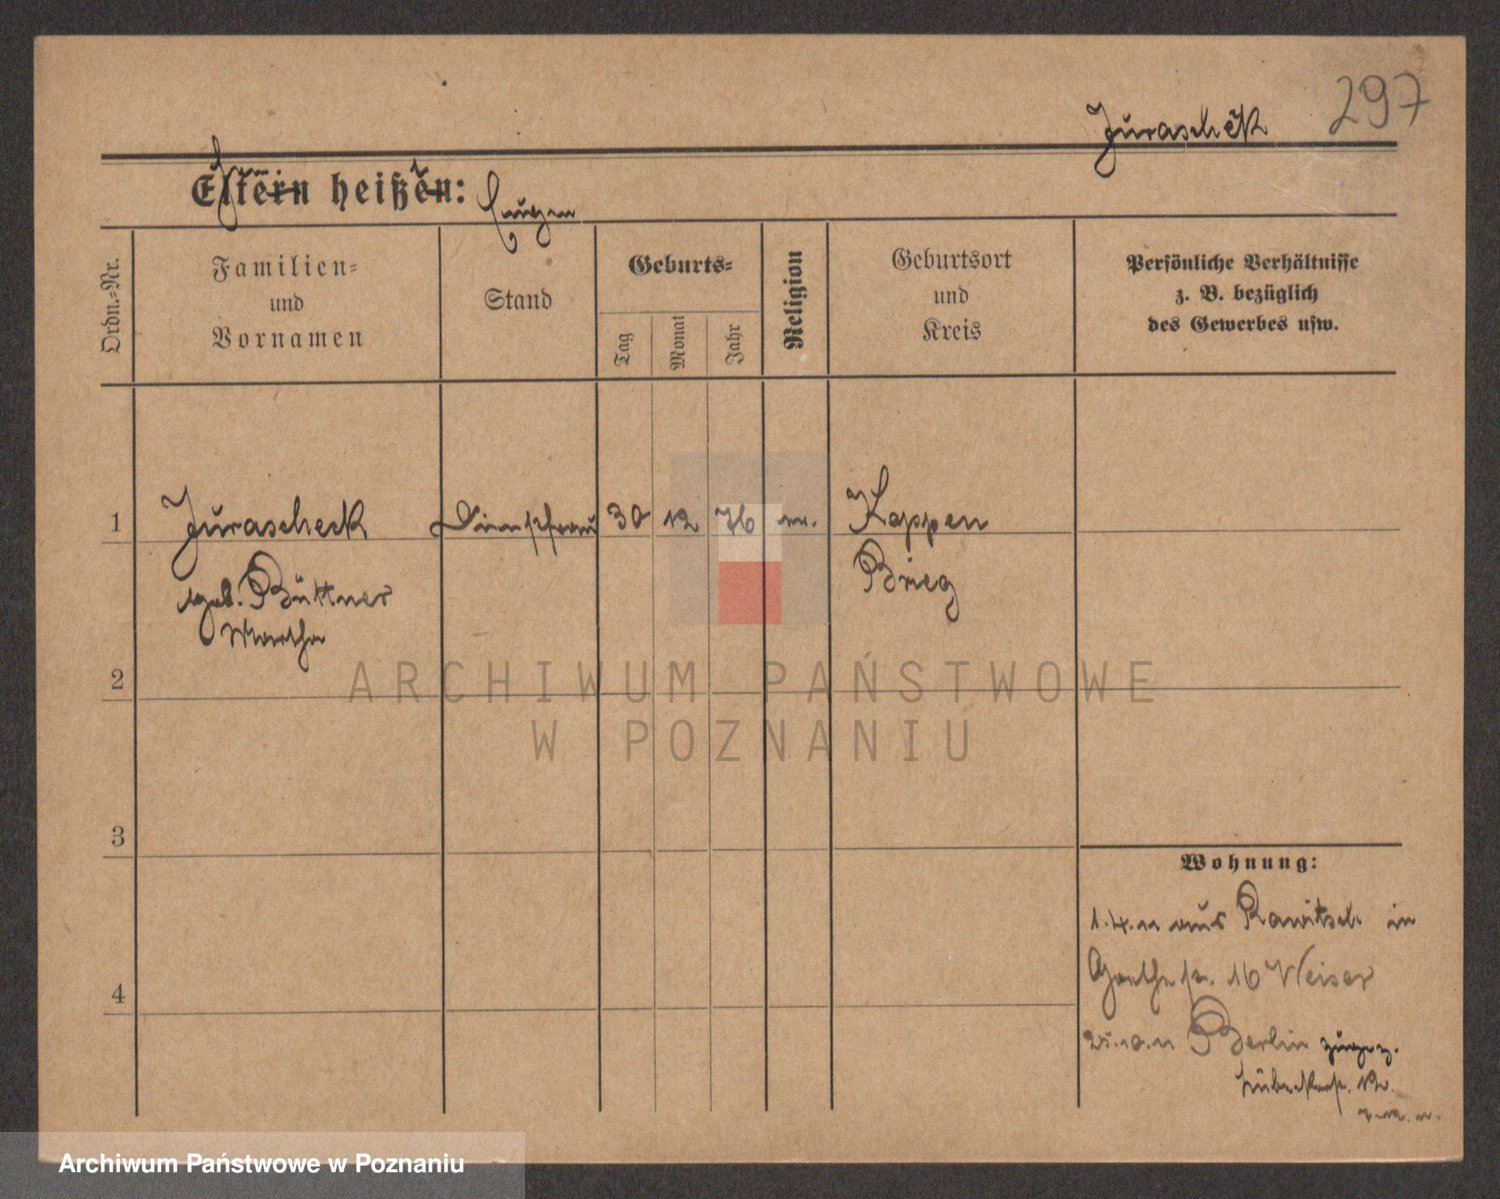 297
Juraschek
Eltern heißen: Eugen
Ordn.-Nr.
Familien-
und
Vornamen
Stand
Geburts-
Tag
Monat
Jahr
Religion
Geburtsort
und
Kreis
Persönliche Verhältnisse
z. B. bezüglich
des Gewerbes usw.
1 Jurascheck 30 12 76 Koppen
geb. Büttner Brieg
Martha
2
ARCHIWUM PAŃSTWOWE
W POZNANIU
3
Wohnung:
1.4.11 aus Rawitsch in
Goethestr. 16 Weiser
4
25.10.11 Berlin
Archiwum Państwowe w Poznaniu